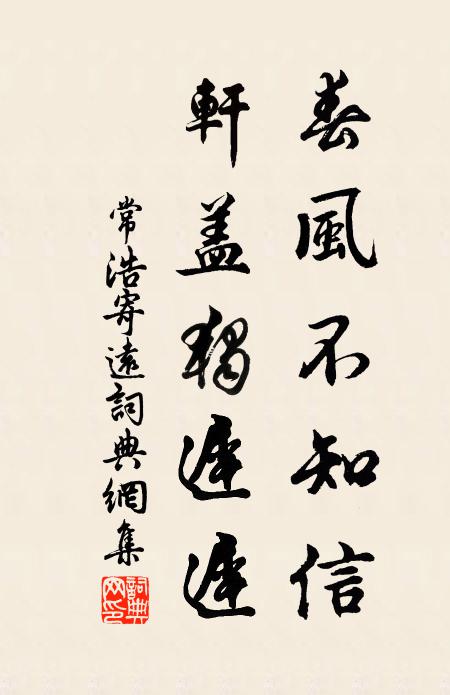 春風不知信
軒盖獨遲遲
常浩寄遠詞典網集
詞典
网印